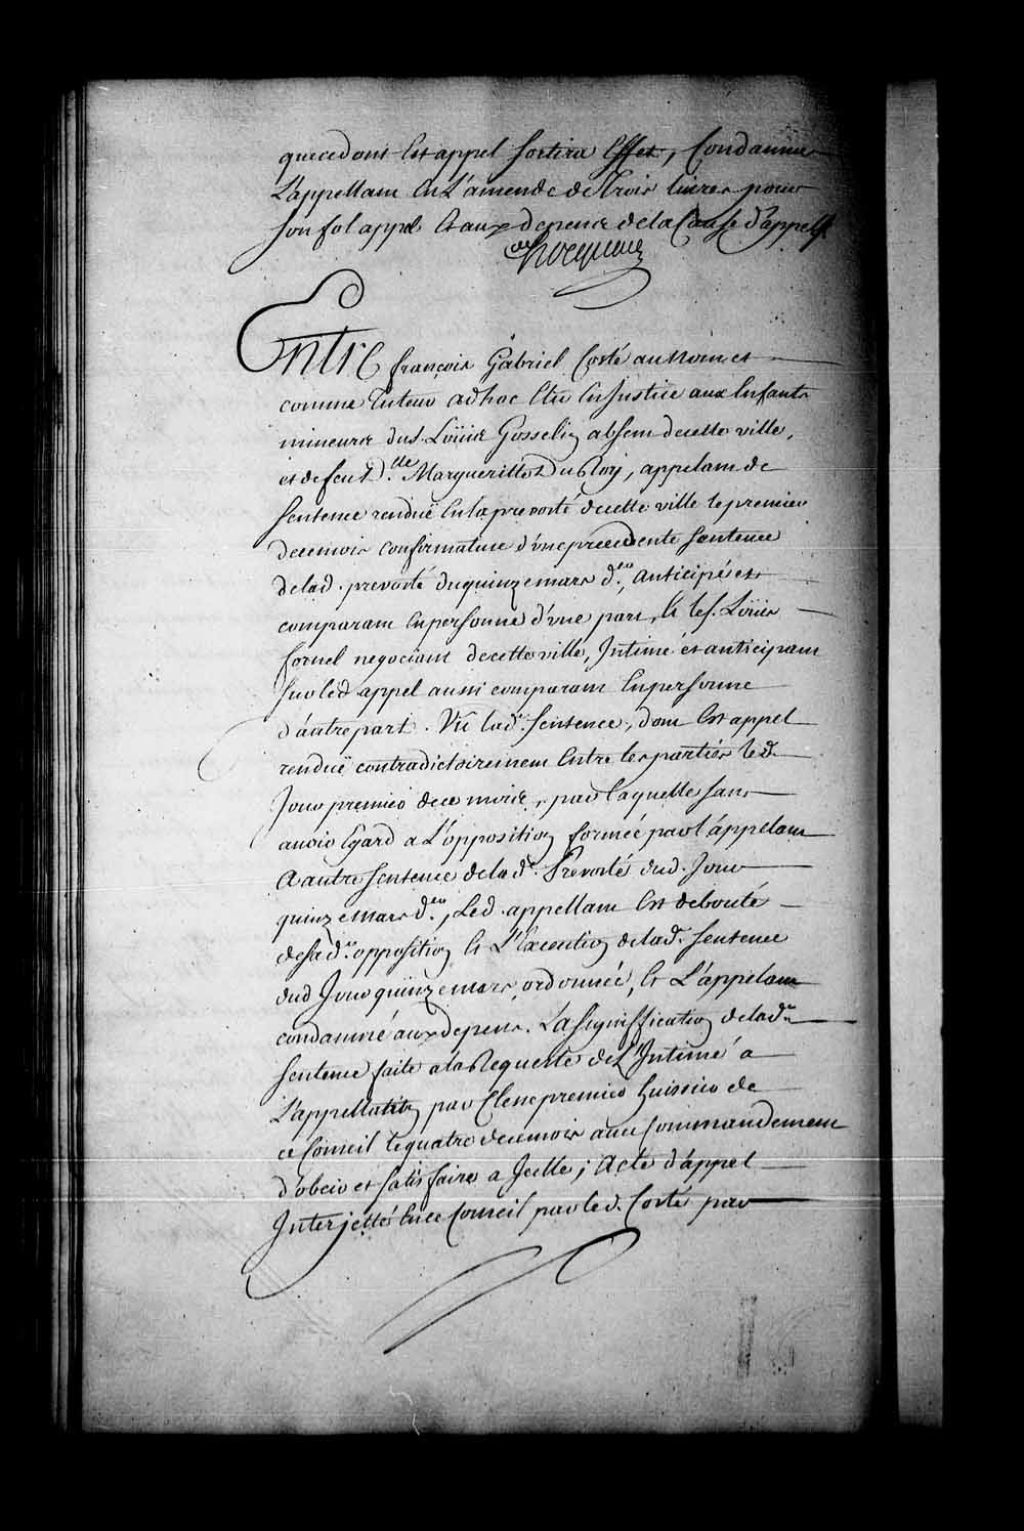 que cedont est appel sortira Effet, Condamne
L'appellant En L'amende de Trois livres pour
son fol appel Et aux depens de la Cause d'appel
hocquart
Entre françois Gabriel Corté au nom et
comme Tuteur adhoc Elu En Justice aux Enfants
mineurs du s. Loüis Gosselin absent de cette ville,
et defeu D.lle Margueritte DuRoy, appelant de
Sentence rendue En la prevosté de cette ville le premier
de ce mois confirmative d'une precedente sentence
de lad. prevosté du quinze mars d.er, anticipé et
comparant En personne d'une part, Et le s. Loüis
fornel negociant de cette ville, Intimé et anticipant
sur led appel aussi comparant En personne
d'autre part. Vû lad.e sentence, dont Est appel
rendüe contradictoirement Entre les parties led.
Jour premier de ce mois, par laquelle sans
avoir Egard a L'opposition formée par l'appelant
A autre sentence de lad.e Prevosté dud. Jour
quinze mars d.er, Led. appellant Est debouté
de sad.e opposition Et L'Execution de lad.e sentence
dud Jour quinze mars, ordonnée, Et L'appelant
condamné aux depens. La signiffication de lad.e
sentence faite a la Requeste de L'Intimé a
L'appellant par Clesse premier huissier de
ce Conseil le quatre de ce mois avec Commandement
d'obeir et satisfaire a Icelle; Acte d'appel
Interjetté En ce Conseil par led. Corté par